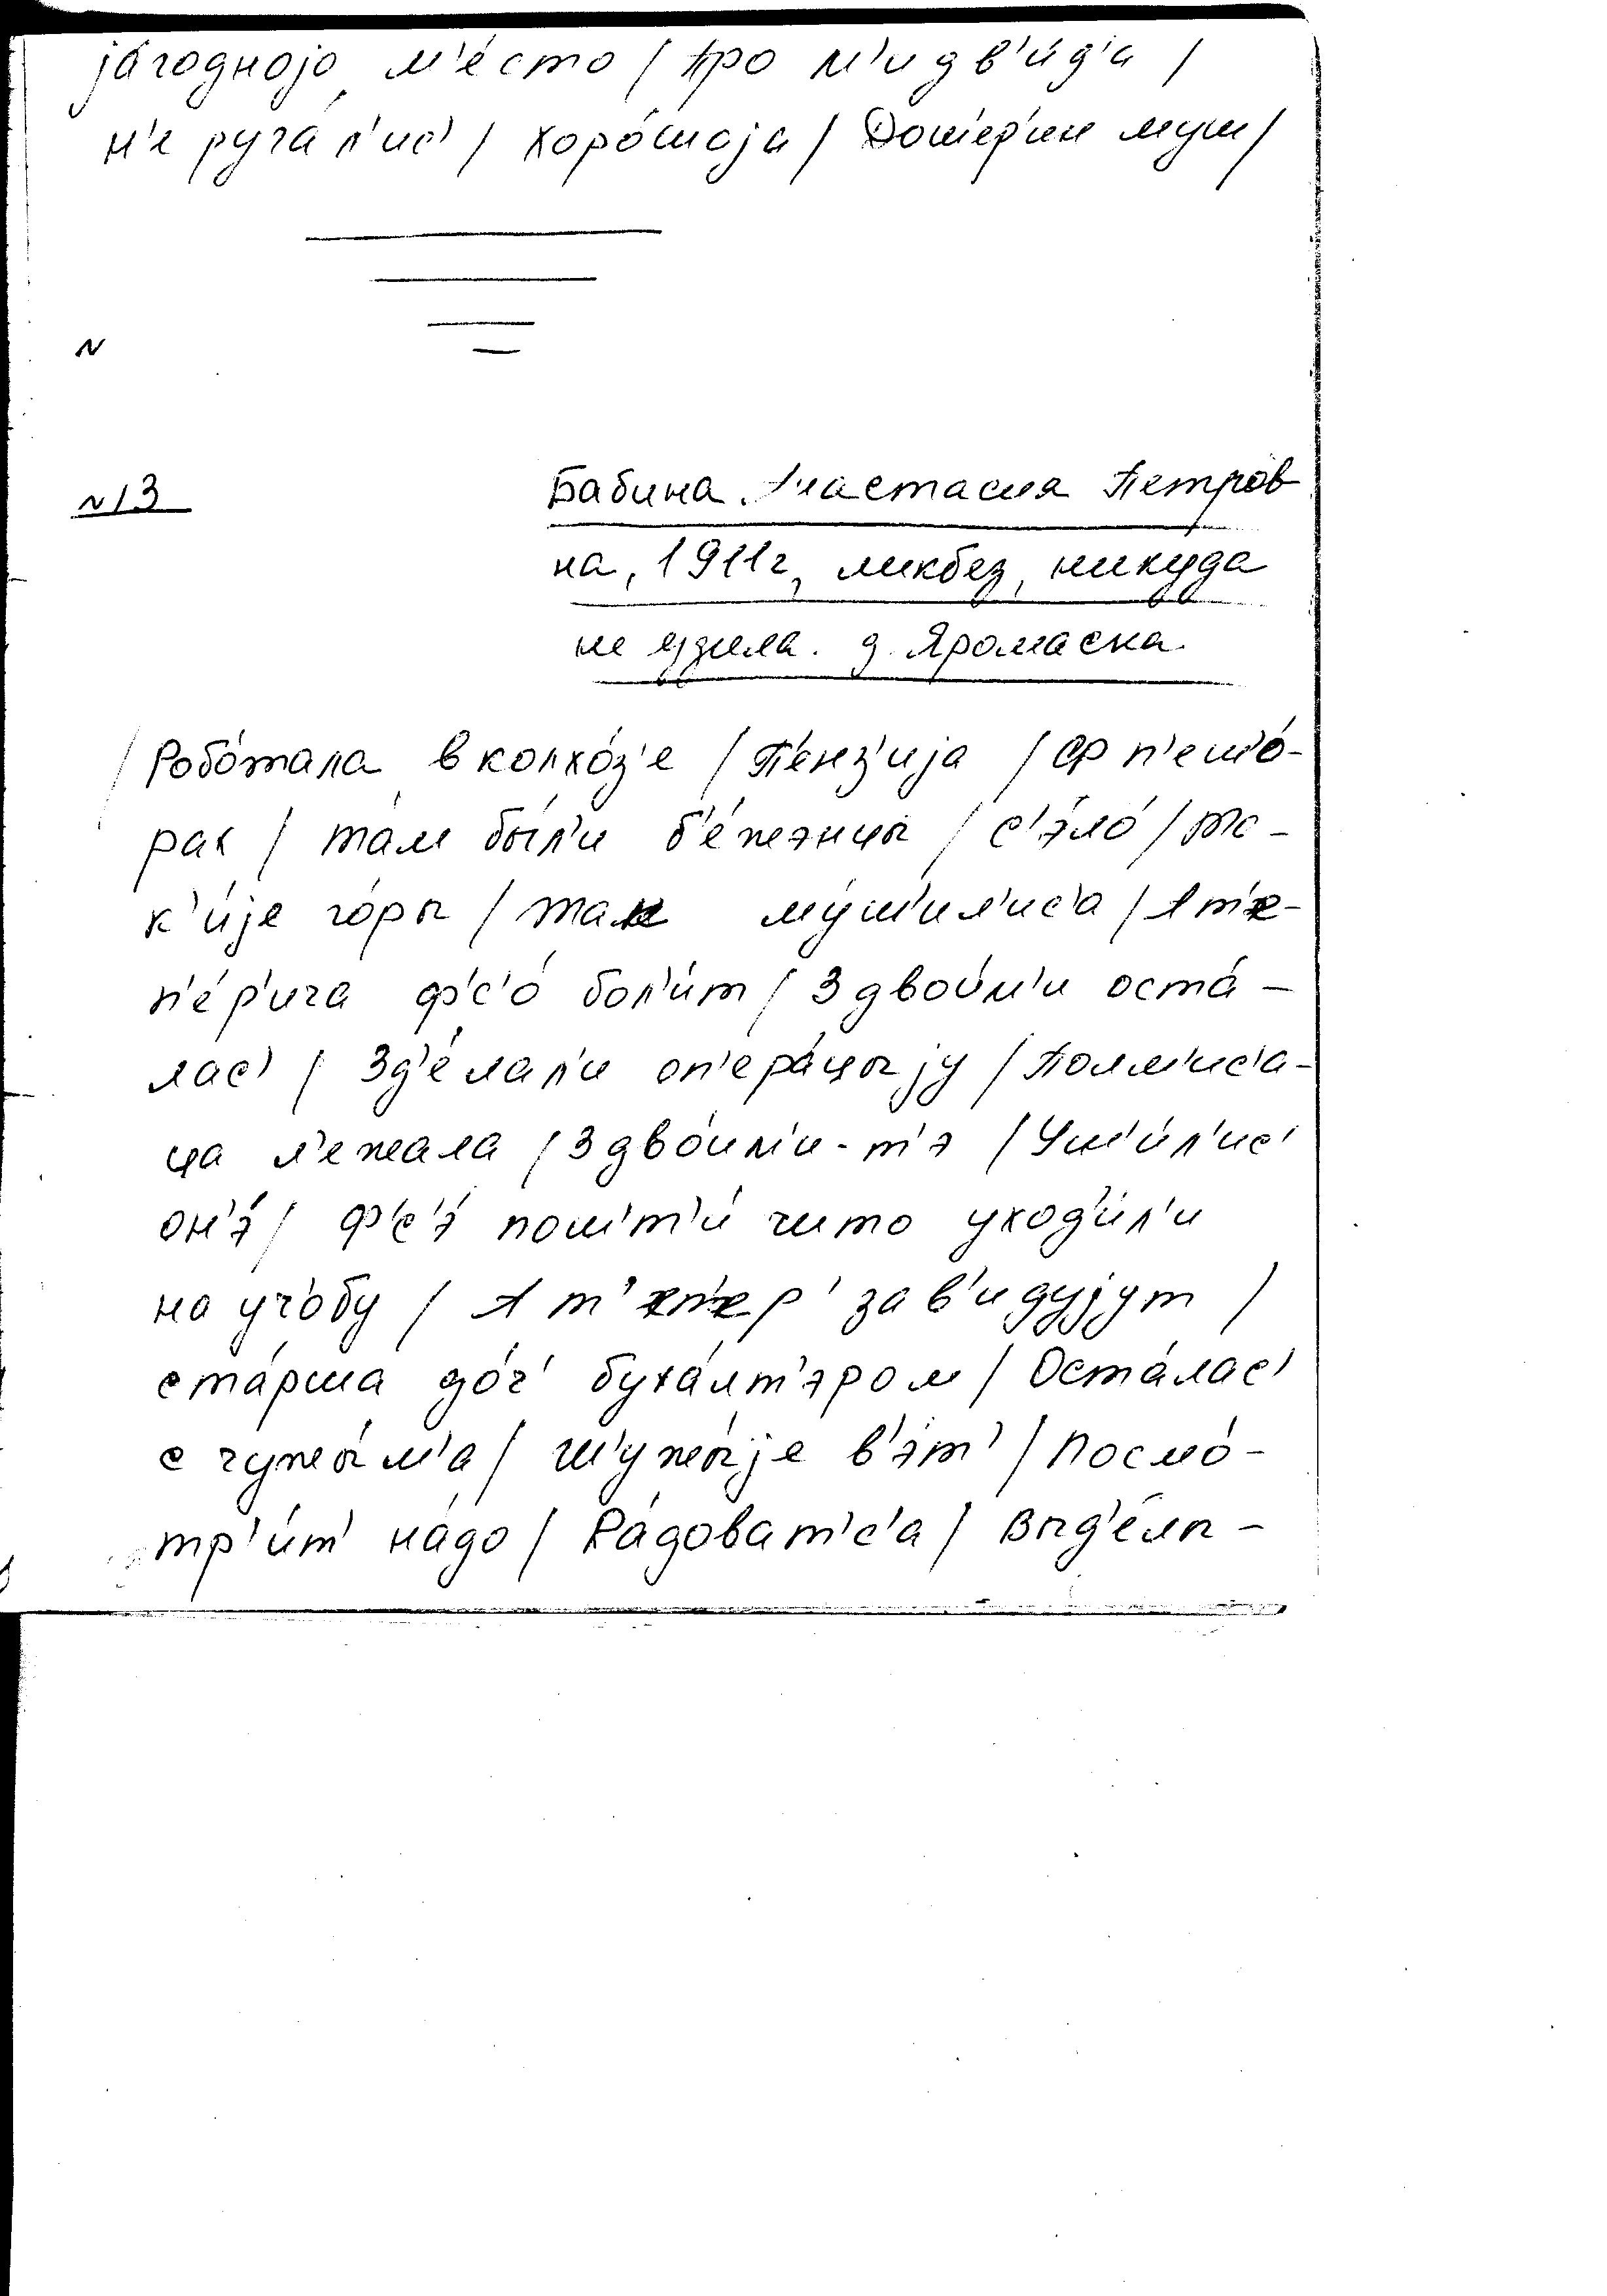 ја́годноjо м'е́сто / про м'идв'и́д'а /
н'е руга́л'ис' / хоро́шоjа / Дошер'ин муш /
N
N13
Бабина Анастасия Петров
на, 1911г, ликбез, никуда
не ездила. д. Яромаска.
/ Робо́тала в колхо́з'е / П'е́нз'иjа / Ф п'ешо́-
рах / та́м бы́л'и б'е́женцы / с'эло́ / та-
к'и́jе го́ры / так му́ш'ил'ис'а / А т'е-
п'е́р'ича ф'с'о́ бол'и́т / З двои́м'и оста́-
лас' / Зд'е́лал'и оп'ера́цыjу / Полм'ис'а-
ца л'ежала / З двои́м'и-т'э / Уш'и́л'ис'
он'э́ / ф'с'э́ пош'т'и́ што уход'и́л'и
на уч'обу / А т'еп'ер' зав'идуjут /
ста́рша до́ч' буха́лт'эром / Оста́лас'
с чужы́м'а / Ш'ужы́jе в'эт' / Посмо́-
тр'и́т' на́до / Ра́доват'с'а / Выд'е́лы-